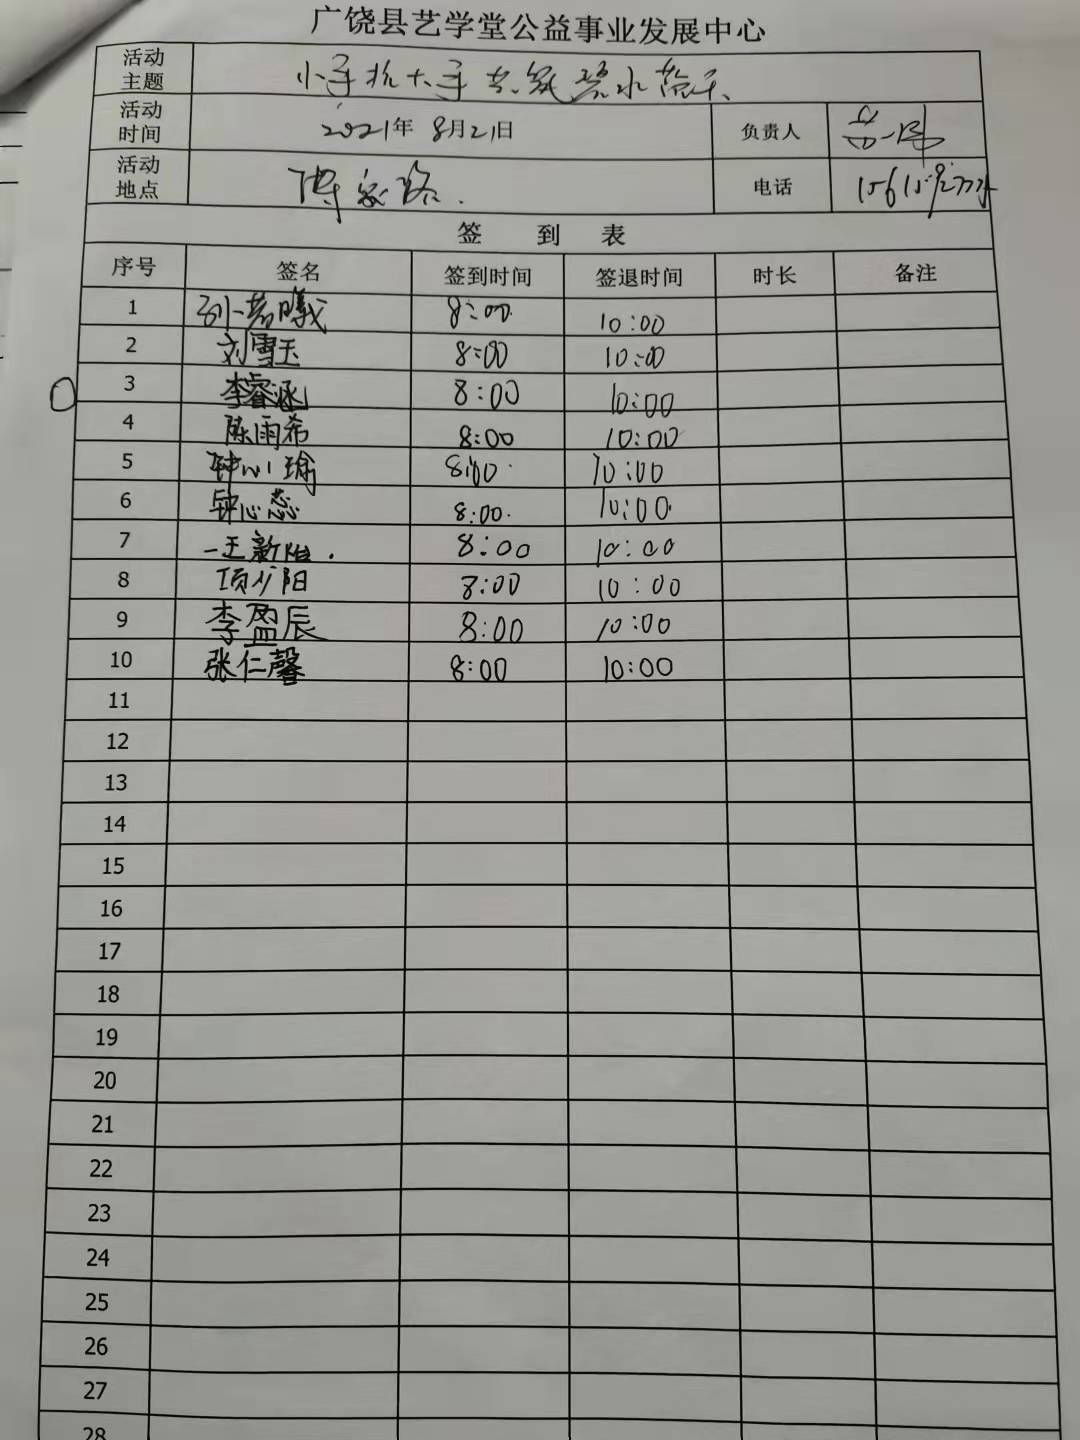 广饶县艺学堂公益事业发展中心
活动主题 小手拉大手 共筑碧水蓝天
活动时间 2021年 8月21日 负责人
活动地点 傅家路. 电话
签 到 表
序号 签名 签到时间 签退时间 时长 备注
1 孙若曦 8:00 10:00
2 刘雪玉 8:00 10:00
3 李睿涵 8:00 10:00
4 陈雨希 8:00 10:00
5 钟心瑜 8:00 10:00
6 钟心蕊 8:00 10:00
7 王新阳 8:00 10:00
8 项少阳 8:00 10:00
9 李盈辰 8:00 10:00
10 张仁馨 8:00 10:00
11
12
13
14
15
16
17
18
19
20
21
22
23
24
25
26
27
28